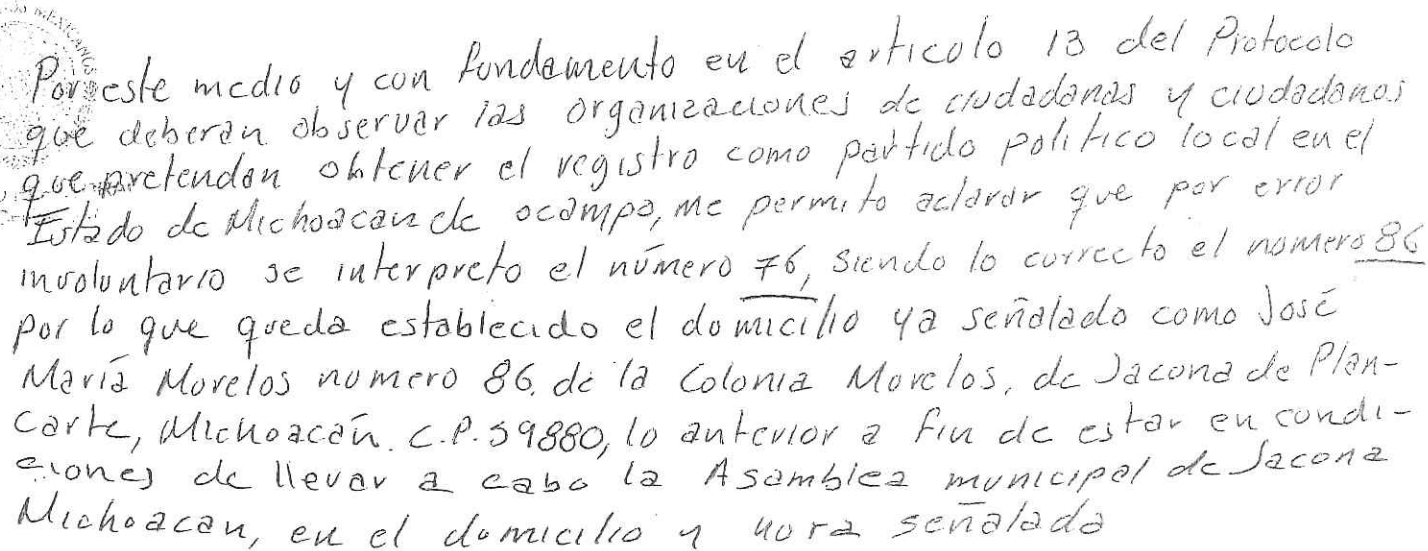 Por este medio y con fundamento en el articulo 13 del Protocolo
que deberan observar las organizaciones de ciudadanas y ciudadanos
que pretendan obtener el registro como partido politico local en el
Estado de Michoacan de ocampo, me permito aclarar que por error
involuntario se interpreto el número 76, siendo lo correcto el numero 86
por lo que queda establecido el domicilio ya señalado como José
María Morelos numero 86. de la Colonia Morelos, de Jacona de Plan-
carte, Michoacán. C.P. 59880, lo anterior a fin de estar en condi-
ciones de llevar a cabo la Asamblea municipal de Jacona
Michoacan, en el domicilio y hora señalada